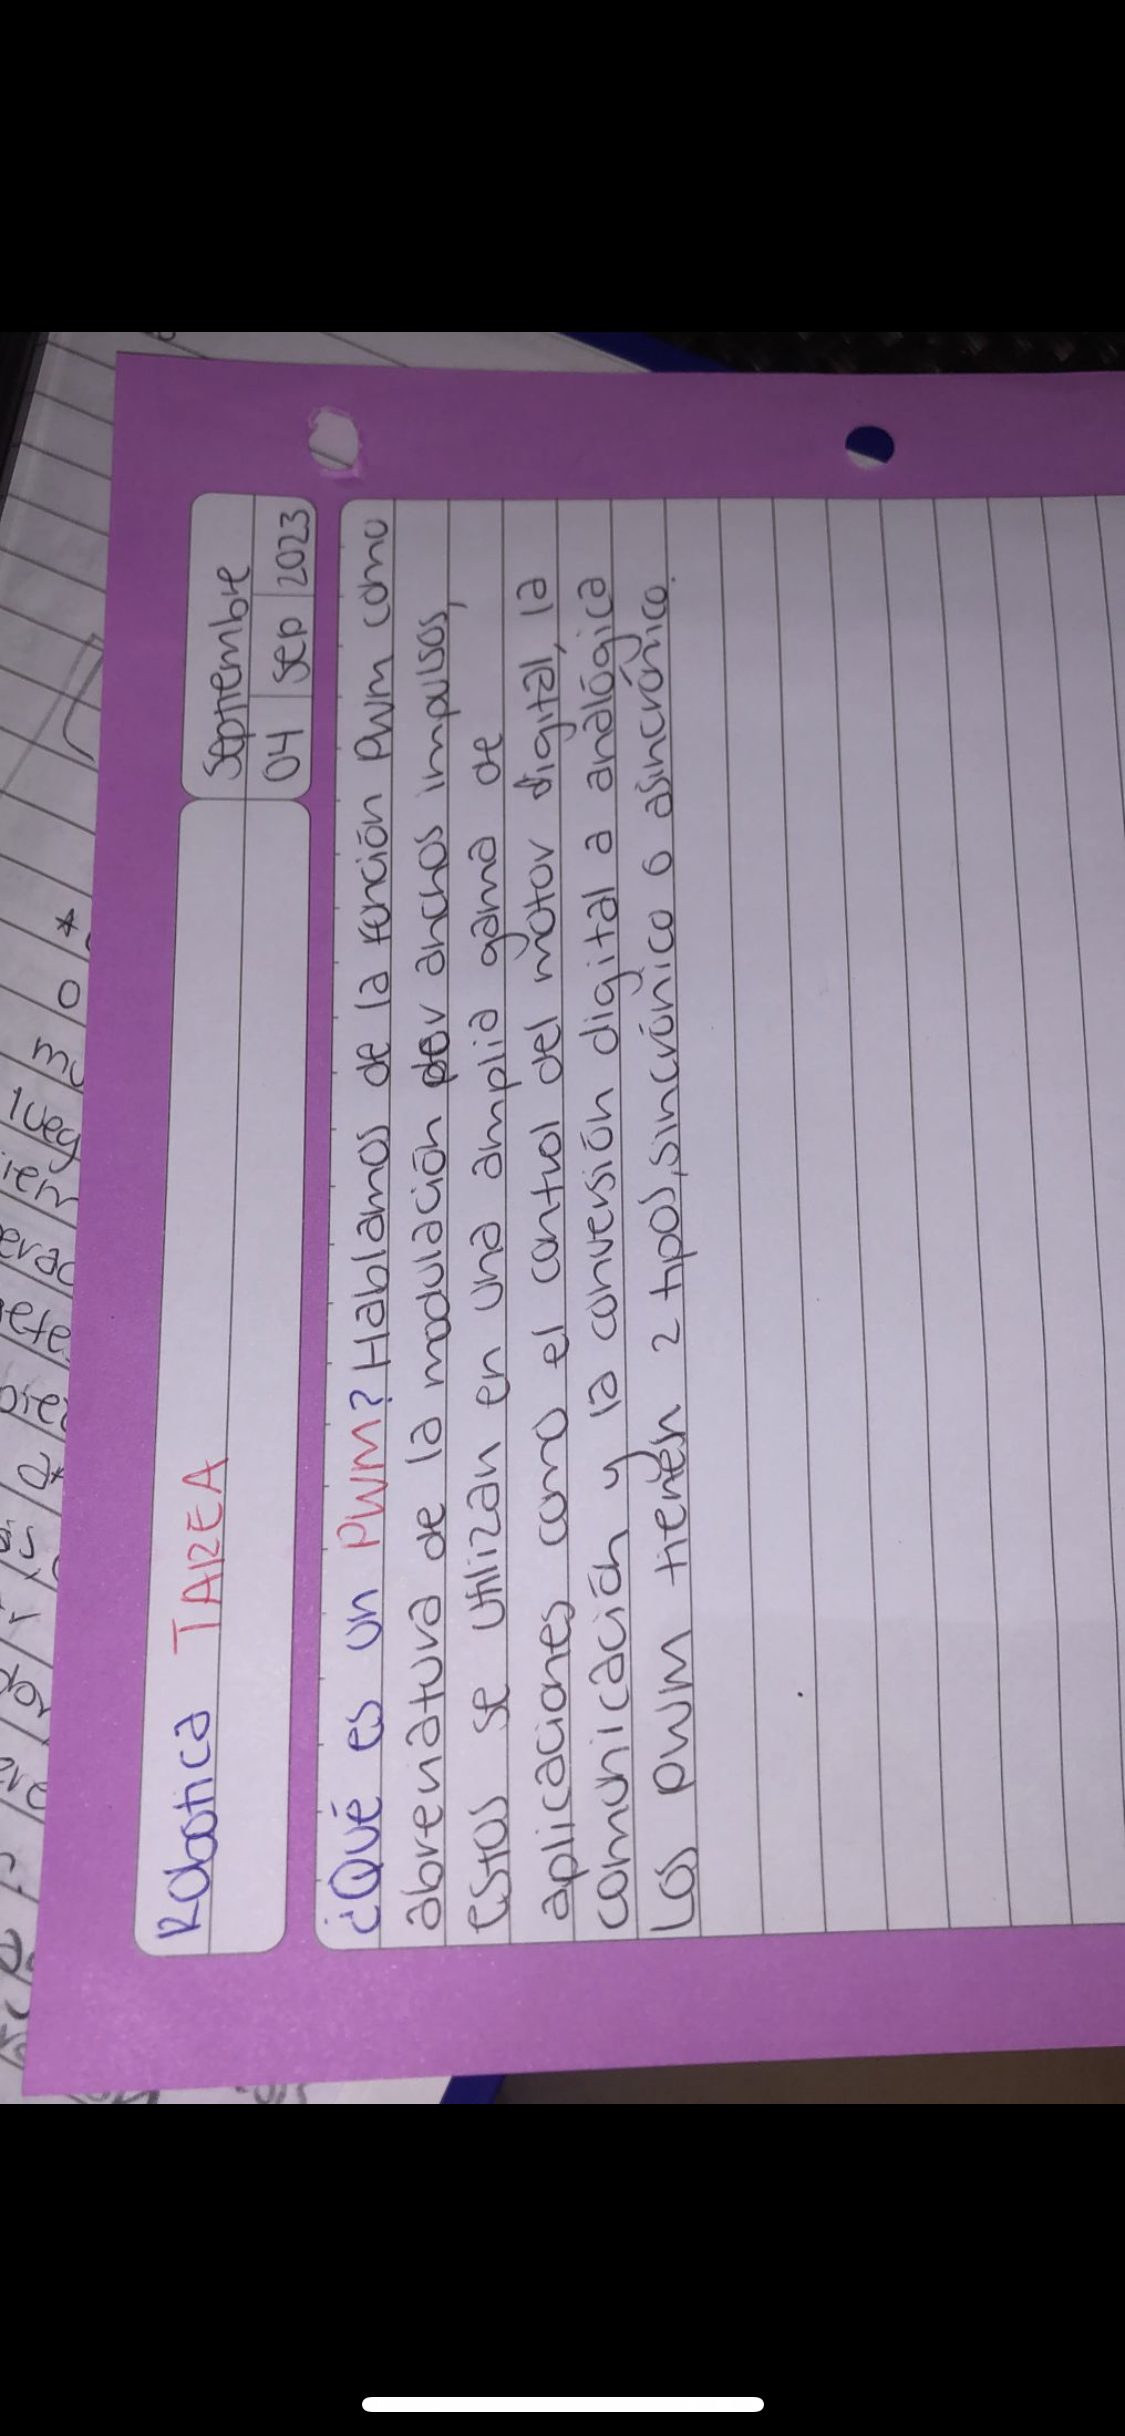 Robotica TAREA
Septiembre
04 sep 2023
¿Qué es un PWM? Hablamos de la función PWM como
abreviatura de la modulación por anchos impulsos,
Estos se utilizan en una amplia gama de
aplicaciones como el control del motor digital, la
comunicación y la conversión digital a analógica
Los PWM tienen 2 tipos, sincrónico ó asincrónico.